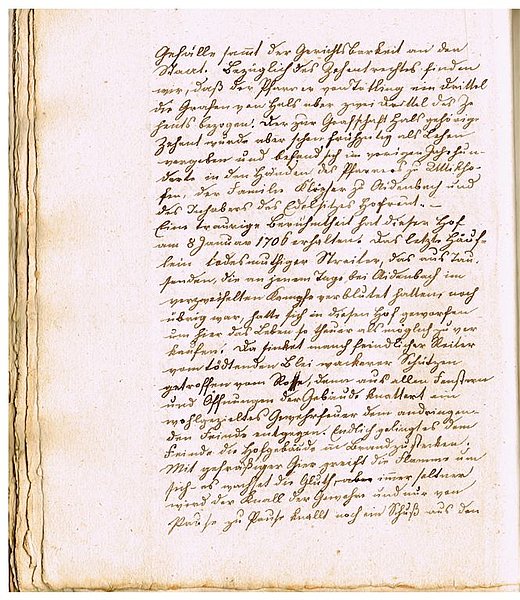 Gefälle sammt der Gerichtsbarkeit an den
Staat. Bezüglich des Zehentrechtes finden
wir, daß der Pfarrer von ein Drittel
die Grafen von Hals aber zwei Drittel des Ze-
hents bezogen. Der zur Grafschaft Hals gehörige
Zehent wurde aber schon frühzeitig als Lehen
vergeben und befand sich im vorigen Jahrhun-
derte in den Händen des Pfarrers zu Uttigkho-
fen, der Familie zu Aidenbach und
des Inhabers des Edelsitzes Hofreut. –
Eine traurige Berühmtheit hat dieser Hof
am 8 Januar 1706 erhalten. Das letzte Häuf-
lein todesmuthiger Streiter, das aus Tau-
senden, die an jenem Tage bei Aidenbach im
verzweifelten Kampfe verblutet hatten, noch
übrig war, hatte sich in diesen Hof geworfen
um hier das Leben so theuer als möglich zu ver-
kaufen. Da sinket manch feindlicher Reiter
vom tödtenden Blei wackerer Schützen
getroffen vom Rosse, denn aus allen Fenstern
und Öffnungen der Gebäude knattert ein
wohlgezieltes Gewehrfeuer dem andringen-
den Feinde entgegen. Endlich gelingt es dem
Feinde die Hofgebäude in Brand zu stecken.
Mit gefräßiger Gier greift die Flamme um
sich es wachset die Gluth, aber immer seltner
wird der Knall der Gewehre und nur von
Pause zu Pause knallt noch ein Schuß aus den